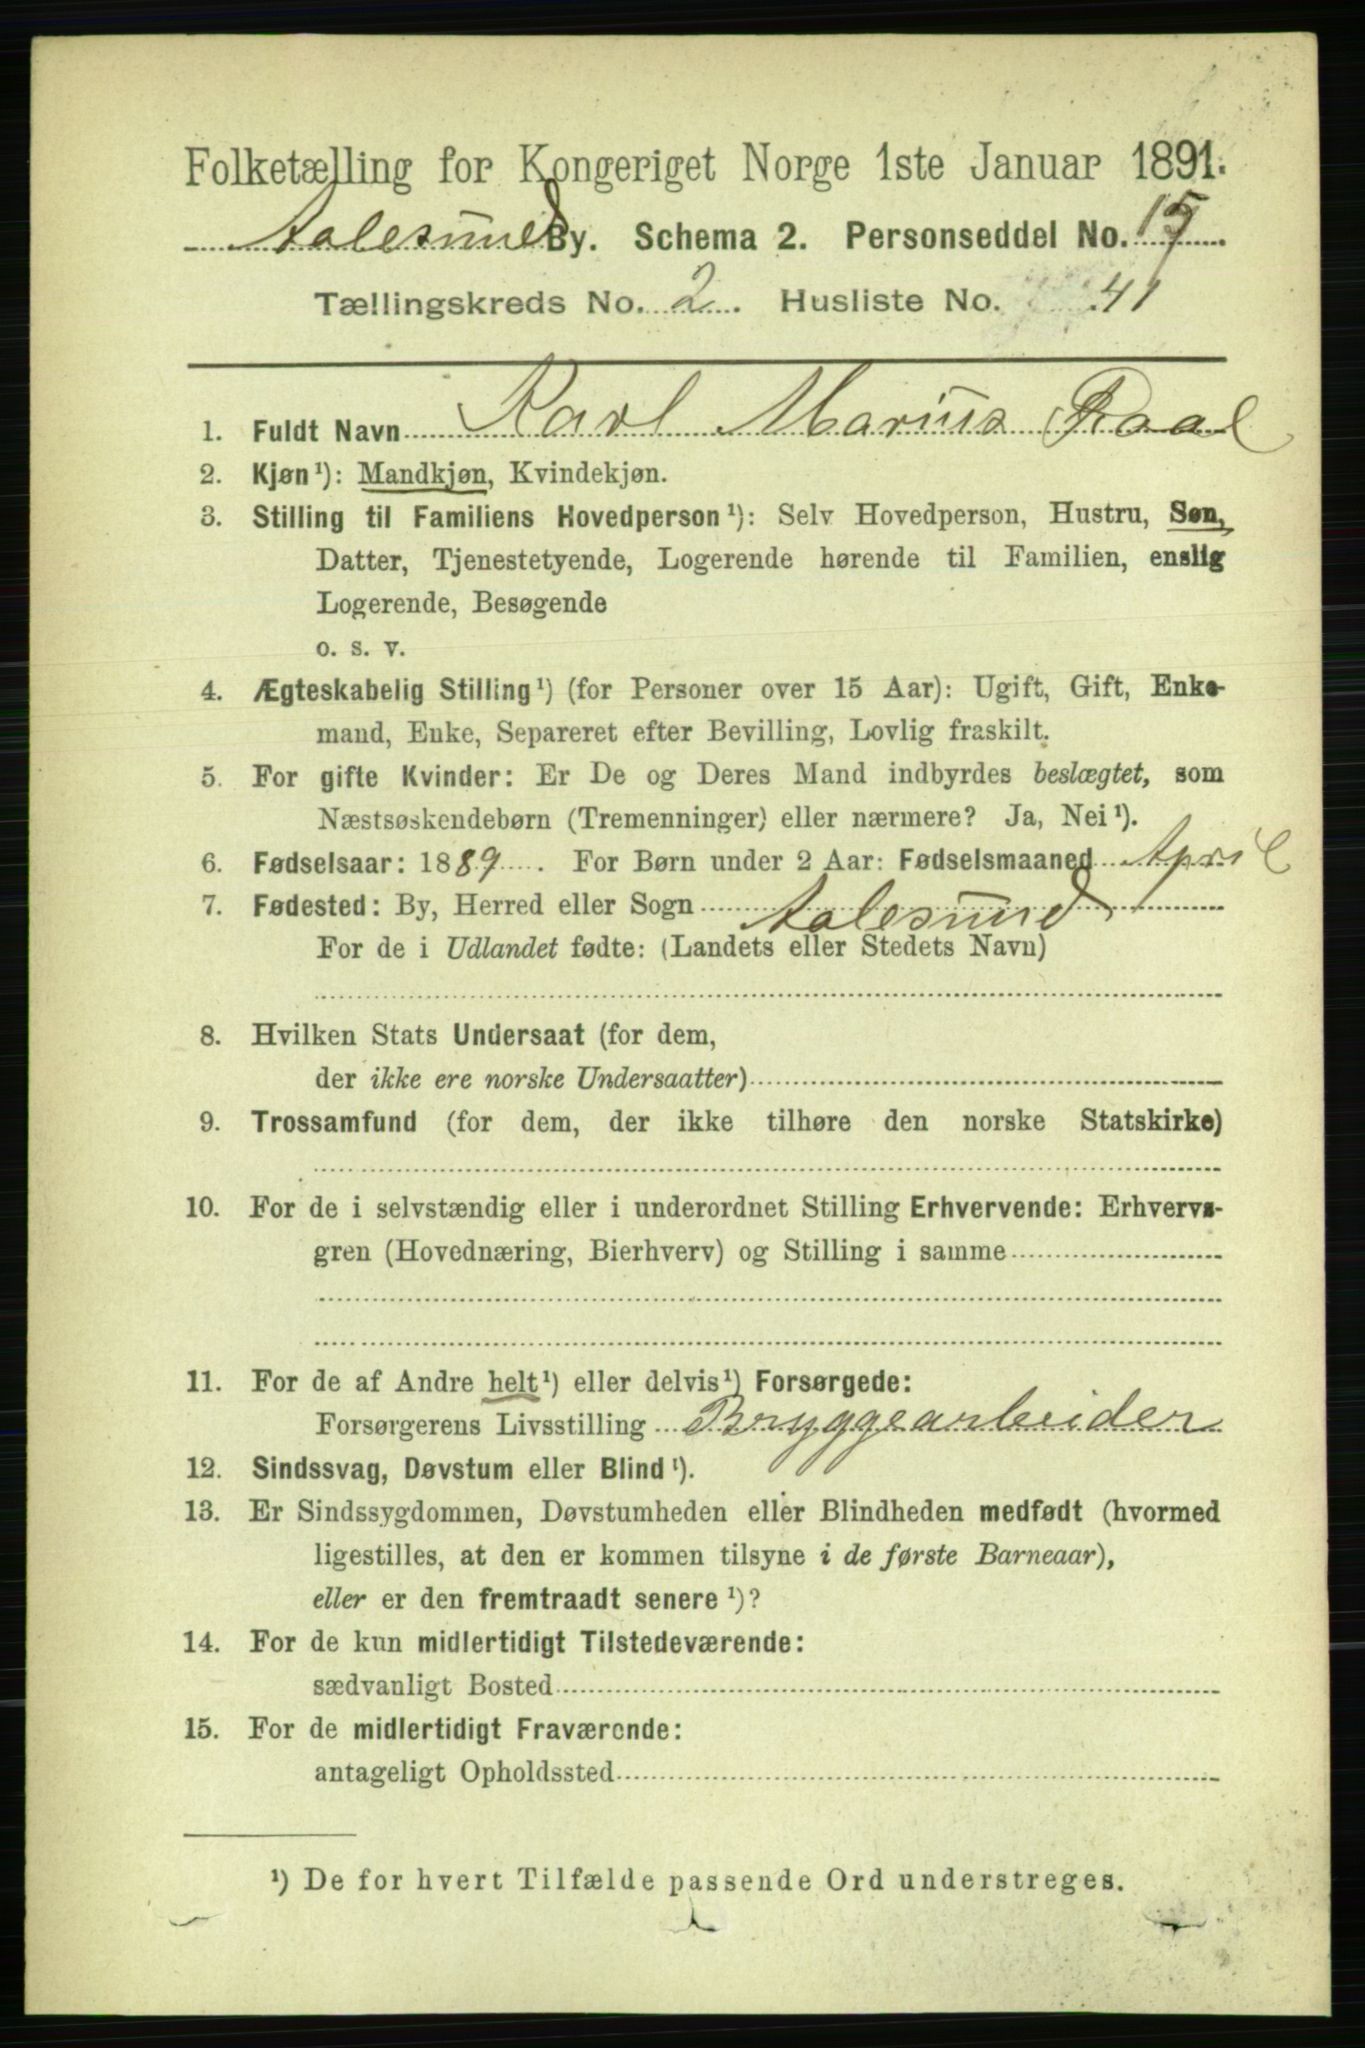 Folketælling for Kongeriget Norge 1ste Januar 1891.
Aalesund By. Schema 2. Personseddel No. 15
Tællingskreds No. 2. Husliste No. 41
1. Fuldt Navn Karl Marius Raal
2. Kjøn¹): Mandkjøn, Kvindekjøn.
3. Stilling til Familiens Hovedperson¹): Selv Hovedperson, Hustru, Søn,
Datter, Tjenestetyende, Logerende hørende til Familien, enslig
Logerende, Besøgende
o. s. v.
4. Ægteskabelig Stilling¹) (for Personer over 15 Aar): Ugift, Gift, Enke-
mand, Enke, Separeret efter Bevilling, Lovlig fraskilt.
5. For gifte Kvinder: Er De og Deres Mand indbyrdes beslægtet, som
Næstsøskendebørn (Tremenninger) eller nærmere? Ja, Nei¹).
6. Fødselsaar: 1889. For Børn under 2 Aar: Fødselsmaaned April
7. Fødested: By, Herred eller Sogn Aalesund
For de i Udlandet fødte: (Landets eller Stedets Navn)
8. Hvilken Stats Undersaat (for dem,
der ikke ere norske Undersaatter)
9. Trossamfund (for dem, der ikke tilhøre den norske Statskirke)
10. For de i selvstændig eller i underordnet Stilling Erhvervende: Erhvervs-
gren (Hovednæring, Bierhverv) og Stilling i samme
11. For de af Andre helt¹) eller delvis¹) Forsørgede:
Forsørgerens Livsstilling Bryggearbeider
12. Sindssvag, Døvstum eller Blind¹).
13. Er Sindssygdommen, Døvstumheden eller Blindheden medfødt (hvormed
ligestilles, at den er kommen tilsyne i de første Barneaar),
eller er den fremtraadt senere¹)?
14. For de kun midlertidigt Tilstedeværende:
sædvanligt Bosted
15. For de midlertidigt Fraværende:
antageligt Opholdssted
¹) De for hvert Tilfælde passende Ord understreges.